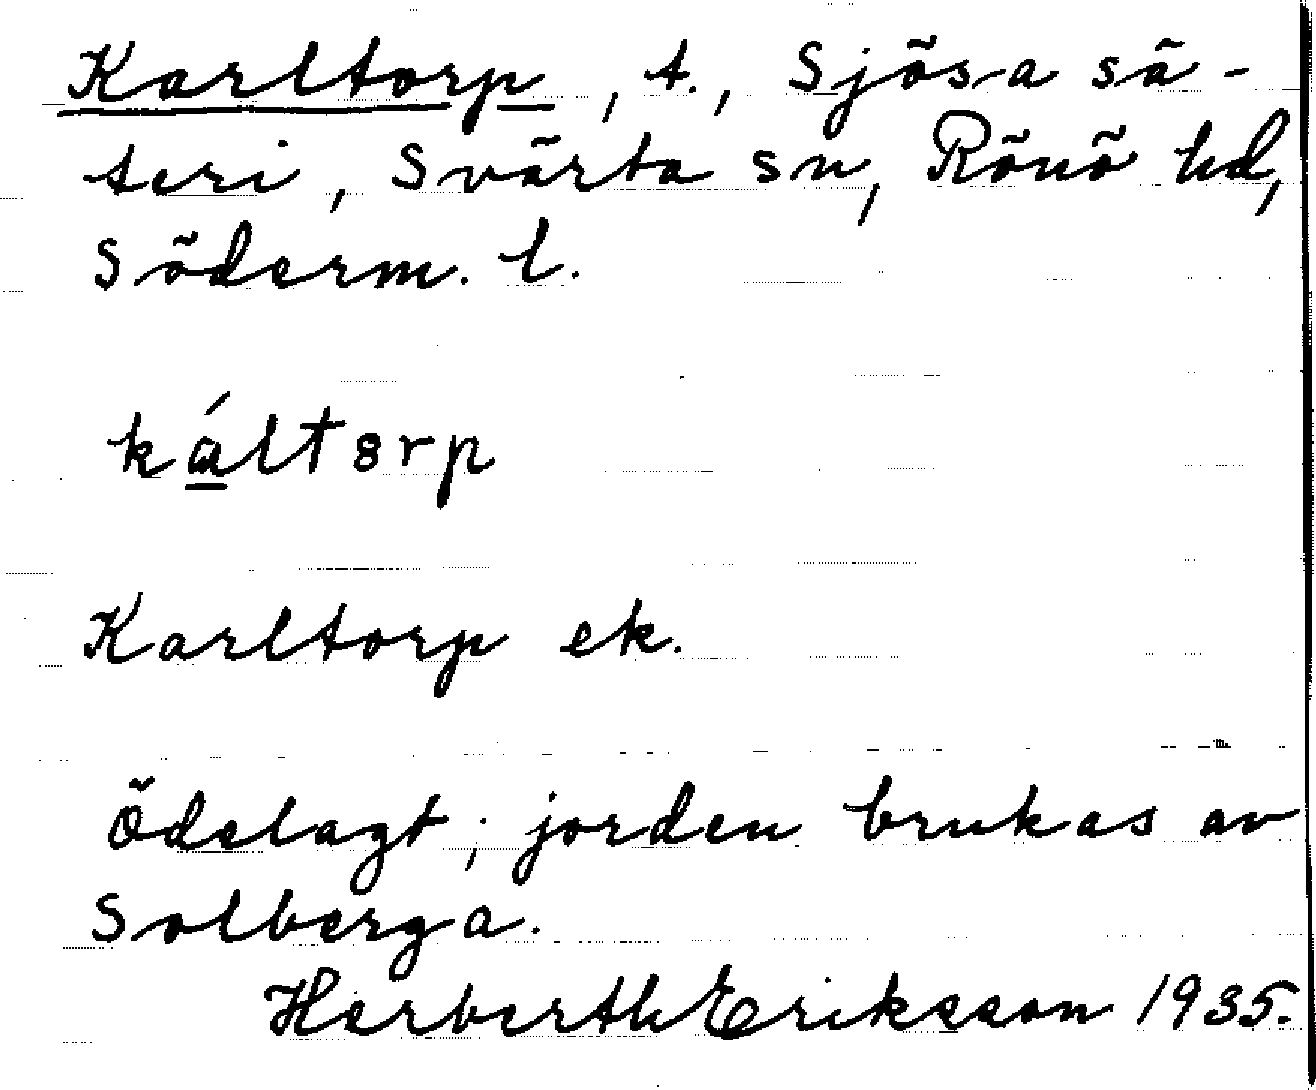 Karltorp, t., Sjösa sä-
teri, Svärta sn, Rönö hd,
Söderm. l.
káltorp
Karltorp ek.
Ödelagt; jorden brukas av
Solberga.
Herberth Eriksson 1935.